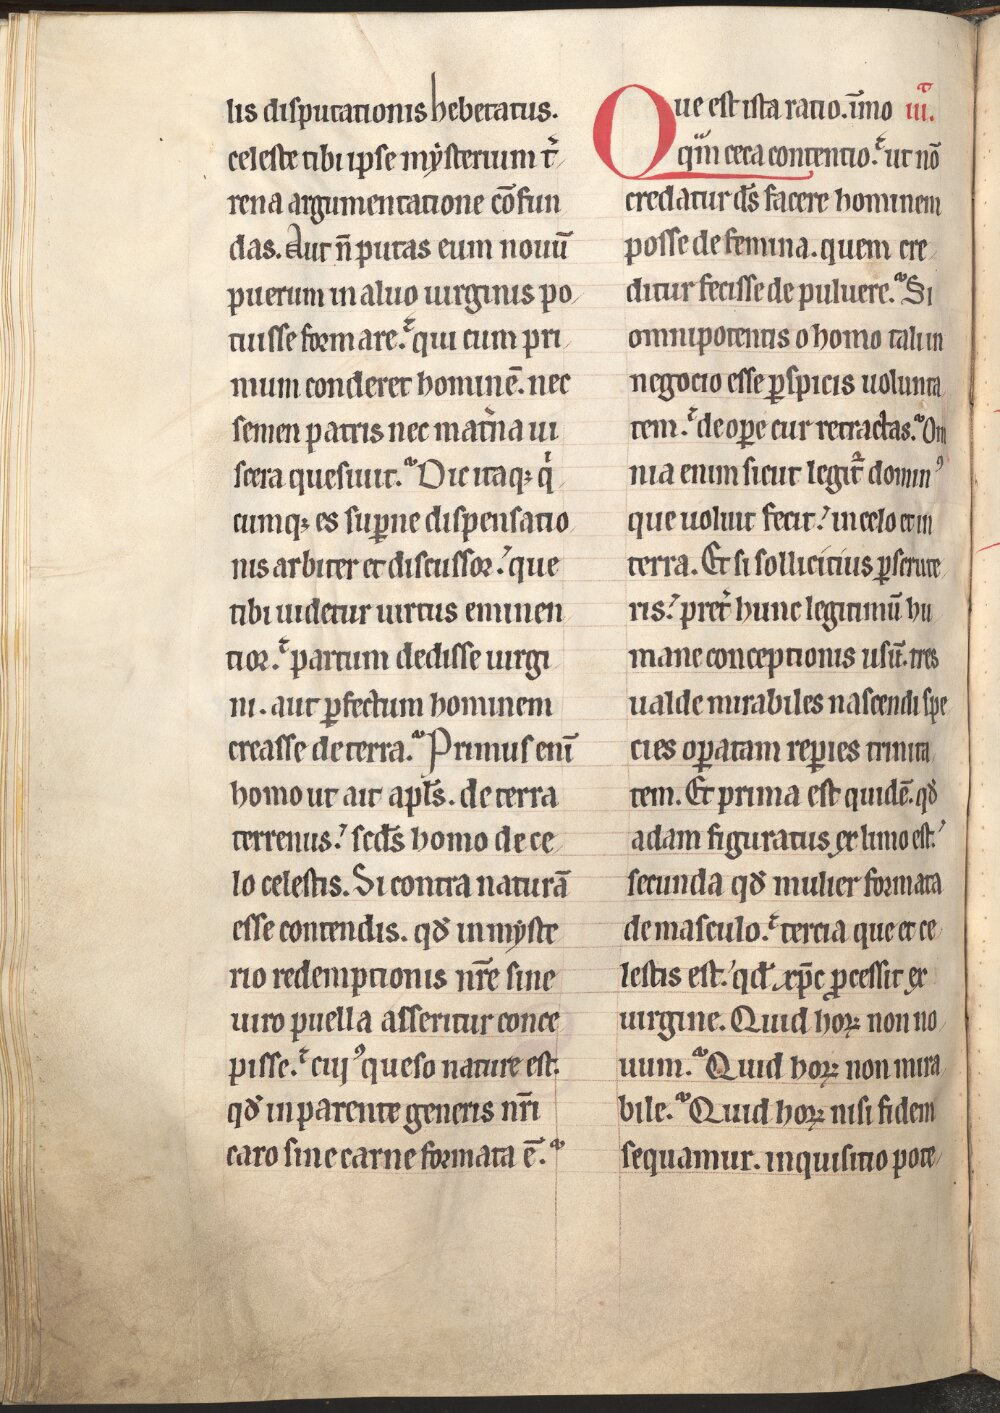 lis disputationis hebetatus.
celeste tibi ipse mẏsterium t̉
rena argumentatione cōfun
das. Aut n̄ putas eum nouū
puerum in aluo uirginis po
tuisse formare. qui cum pri
mum conderet hominē. nec
semen patris nec mat̉na ui
scera quesiuit. Dic itaqꝫ qͥ
cumqꝫ es suꝑne dispensatio
nis arbiter et discussor. que
tibi uidetur uirtus eminen
tior. partum dedisse uirgi
ni. aut ꝑfectum hominem
creasse de terra. Primus eni̅
homo ut ait apl̅s. de terra
terrenus. scd̅s homo de ce
lo celestis. Si contra naturā
esse contendis. qđ in mẏste
rio redemptionis nr̅e sine
uiro puella asseritur conce
pisse. cuiꝰ queso nature est.
qđ in parente generis nr̅i
caro sine carne formata ē.
Que est ista ratio. i̅mo iii.
qi̅m ceca contentio. ut nō
credatur d̅s facere hominem
posse de femina. quem cre
ditur fecisse de puluere. Si
omnipotentis o homo tali in
negocio esse ꝑspicis uolunta
tem. de oꝑe cur retractas. Om
nia enim sicut legit᷑ dominꝰ
que uoluit fecit. in celo et in
terra. Et si sollicitius ꝑscrute
ris. pret̉ hunc legitimū hu
mane conceptionis usū. tres
ualde mirabiles nascendi spe
cies oꝑatam reꝑies trinita
tem. Et prima est quidē. qđ
adam figuratus ex limo est.
secunda qđ mulier formata
de masculo. tercia que et ce
lestis est. qđ xp̅c ꝓcessit ex
uirgine. Quid hoꝝ non no
uum. Quid hoꝝ non mira
bile. Quid hoꝝ nisi fidem
sequamur. inquisitio pote